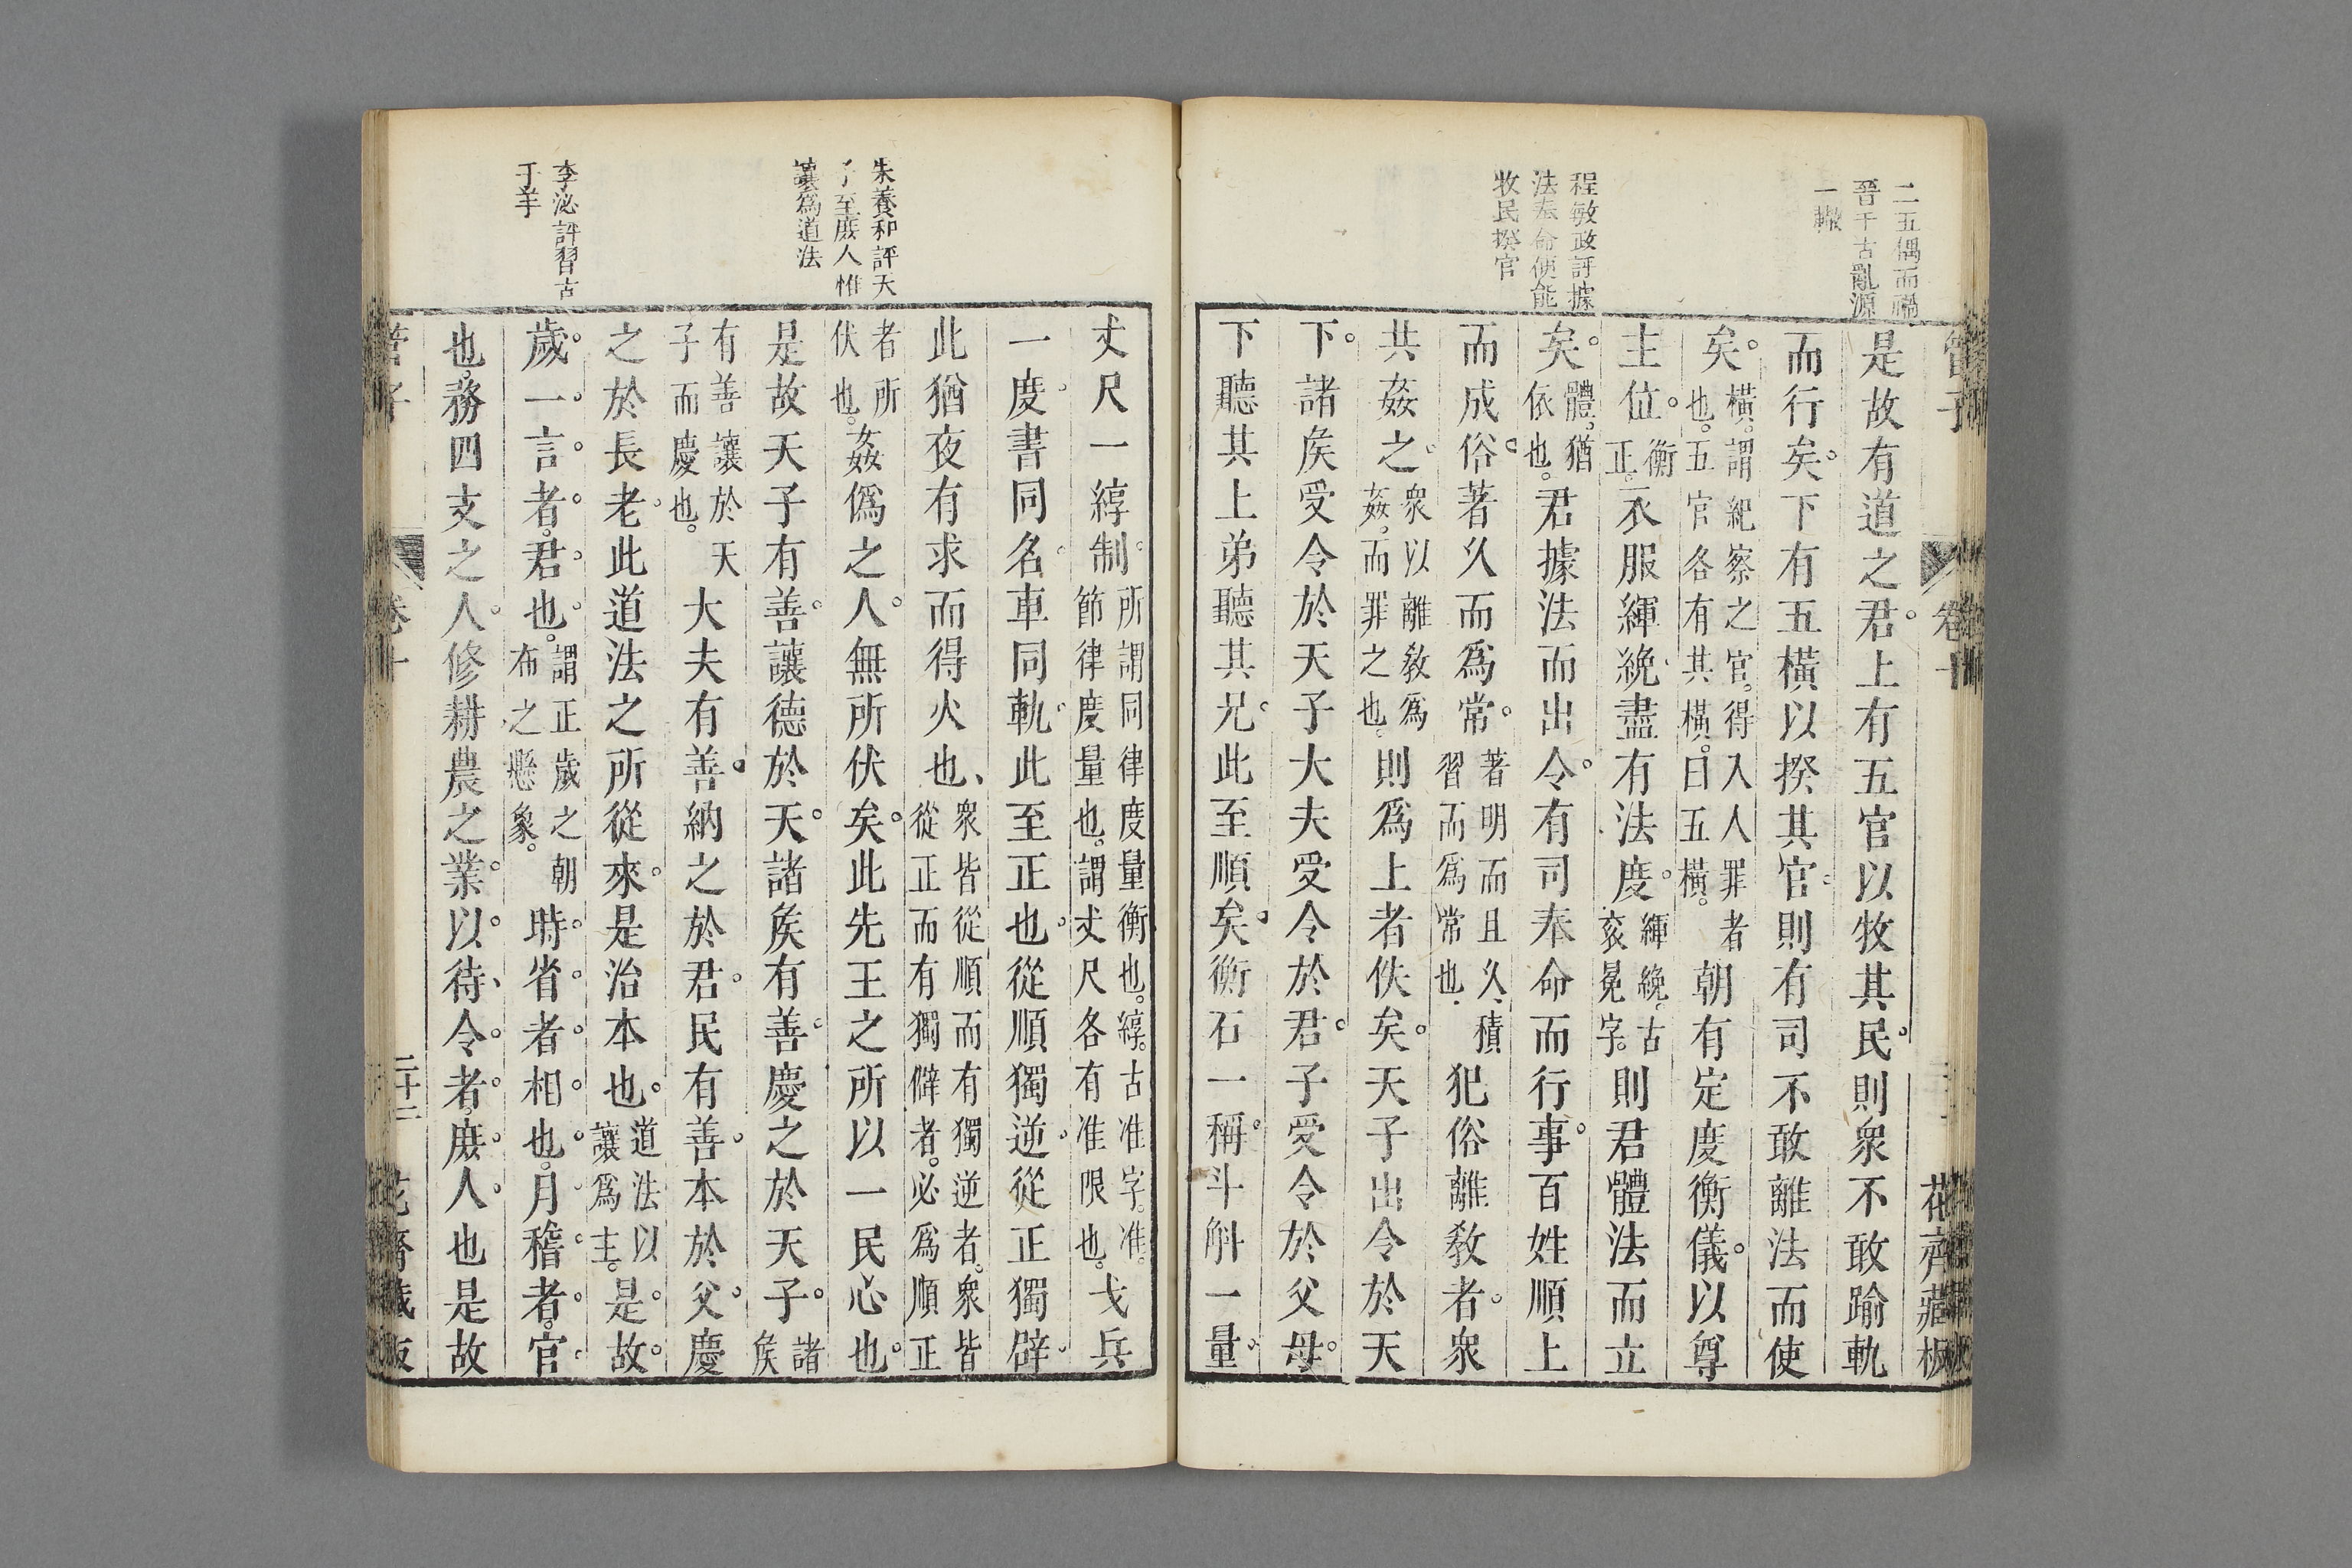 管子 卷十 花齋藏板
二五偶而禍
晉千古亂源
一轍
程敏政評據
法奉命便能
牧民揆官
是故有道之君。上有五官以牧其民。則衆不敢踰軌
而行矣。下有五橫以揆其官。則有司不敢離法而使
矣。橫。謂紀察之官。得入人罪者也。五官各有其橫。曰五橫。朝有定度衡儀。以尊
主位。衡正。衣服緷絻盡有法度。緷絻。古衮冕字。則君體法而立
矣。體。猶依也。君據法而出令。有司奉命而行事。百姓順上
而成俗。著久而爲常。著明而且久。積習而爲常也。犯俗離敎者。衆
共姦之。衆以離敎爲姦。而罪之也。則爲上者佚矣。天子出令於天
下。諸矦受令於天子大夫受令於君。子受令於父母。
下聽其上弟聽其兄。此至順矣。衡石一稱。斗斛一量。
朱養和評天
子至庶人惟
讓爲道法
李泌評習古
于羊
丈尺一綧制。所謂同律度量衡也。綧。古准字。准。節律度量也。謂丈尺各有准限也。戈兵
一度。書同名。車同軌。此至正也。從順獨逆。從正獨辟。
此猶夜有求而得火也、衆皆從順而有獨逆者。衆皆從正而有獨僻者。必爲順正
者所伏也。姦僞之人。無所伏矣。此先王之所以一民心也。
是故天子有善。讓德於天。諸矦有善。慶之於天子。諸矦
有善讓於天子而慶也。大夫有善。納之於君。民有善。本於父。慶
之於長老。此道法之所從來。是治本也。道法以讓爲主。是。故。
歲。一。言。者。君。也。謂正歲之朝布之懸象。時。省。者。相。也。月。稽。者。官。
也。務四支之人。修耕農之業。以。待、令。者。庶。人。也是故
管子 卷十 二十二 花齋藏板